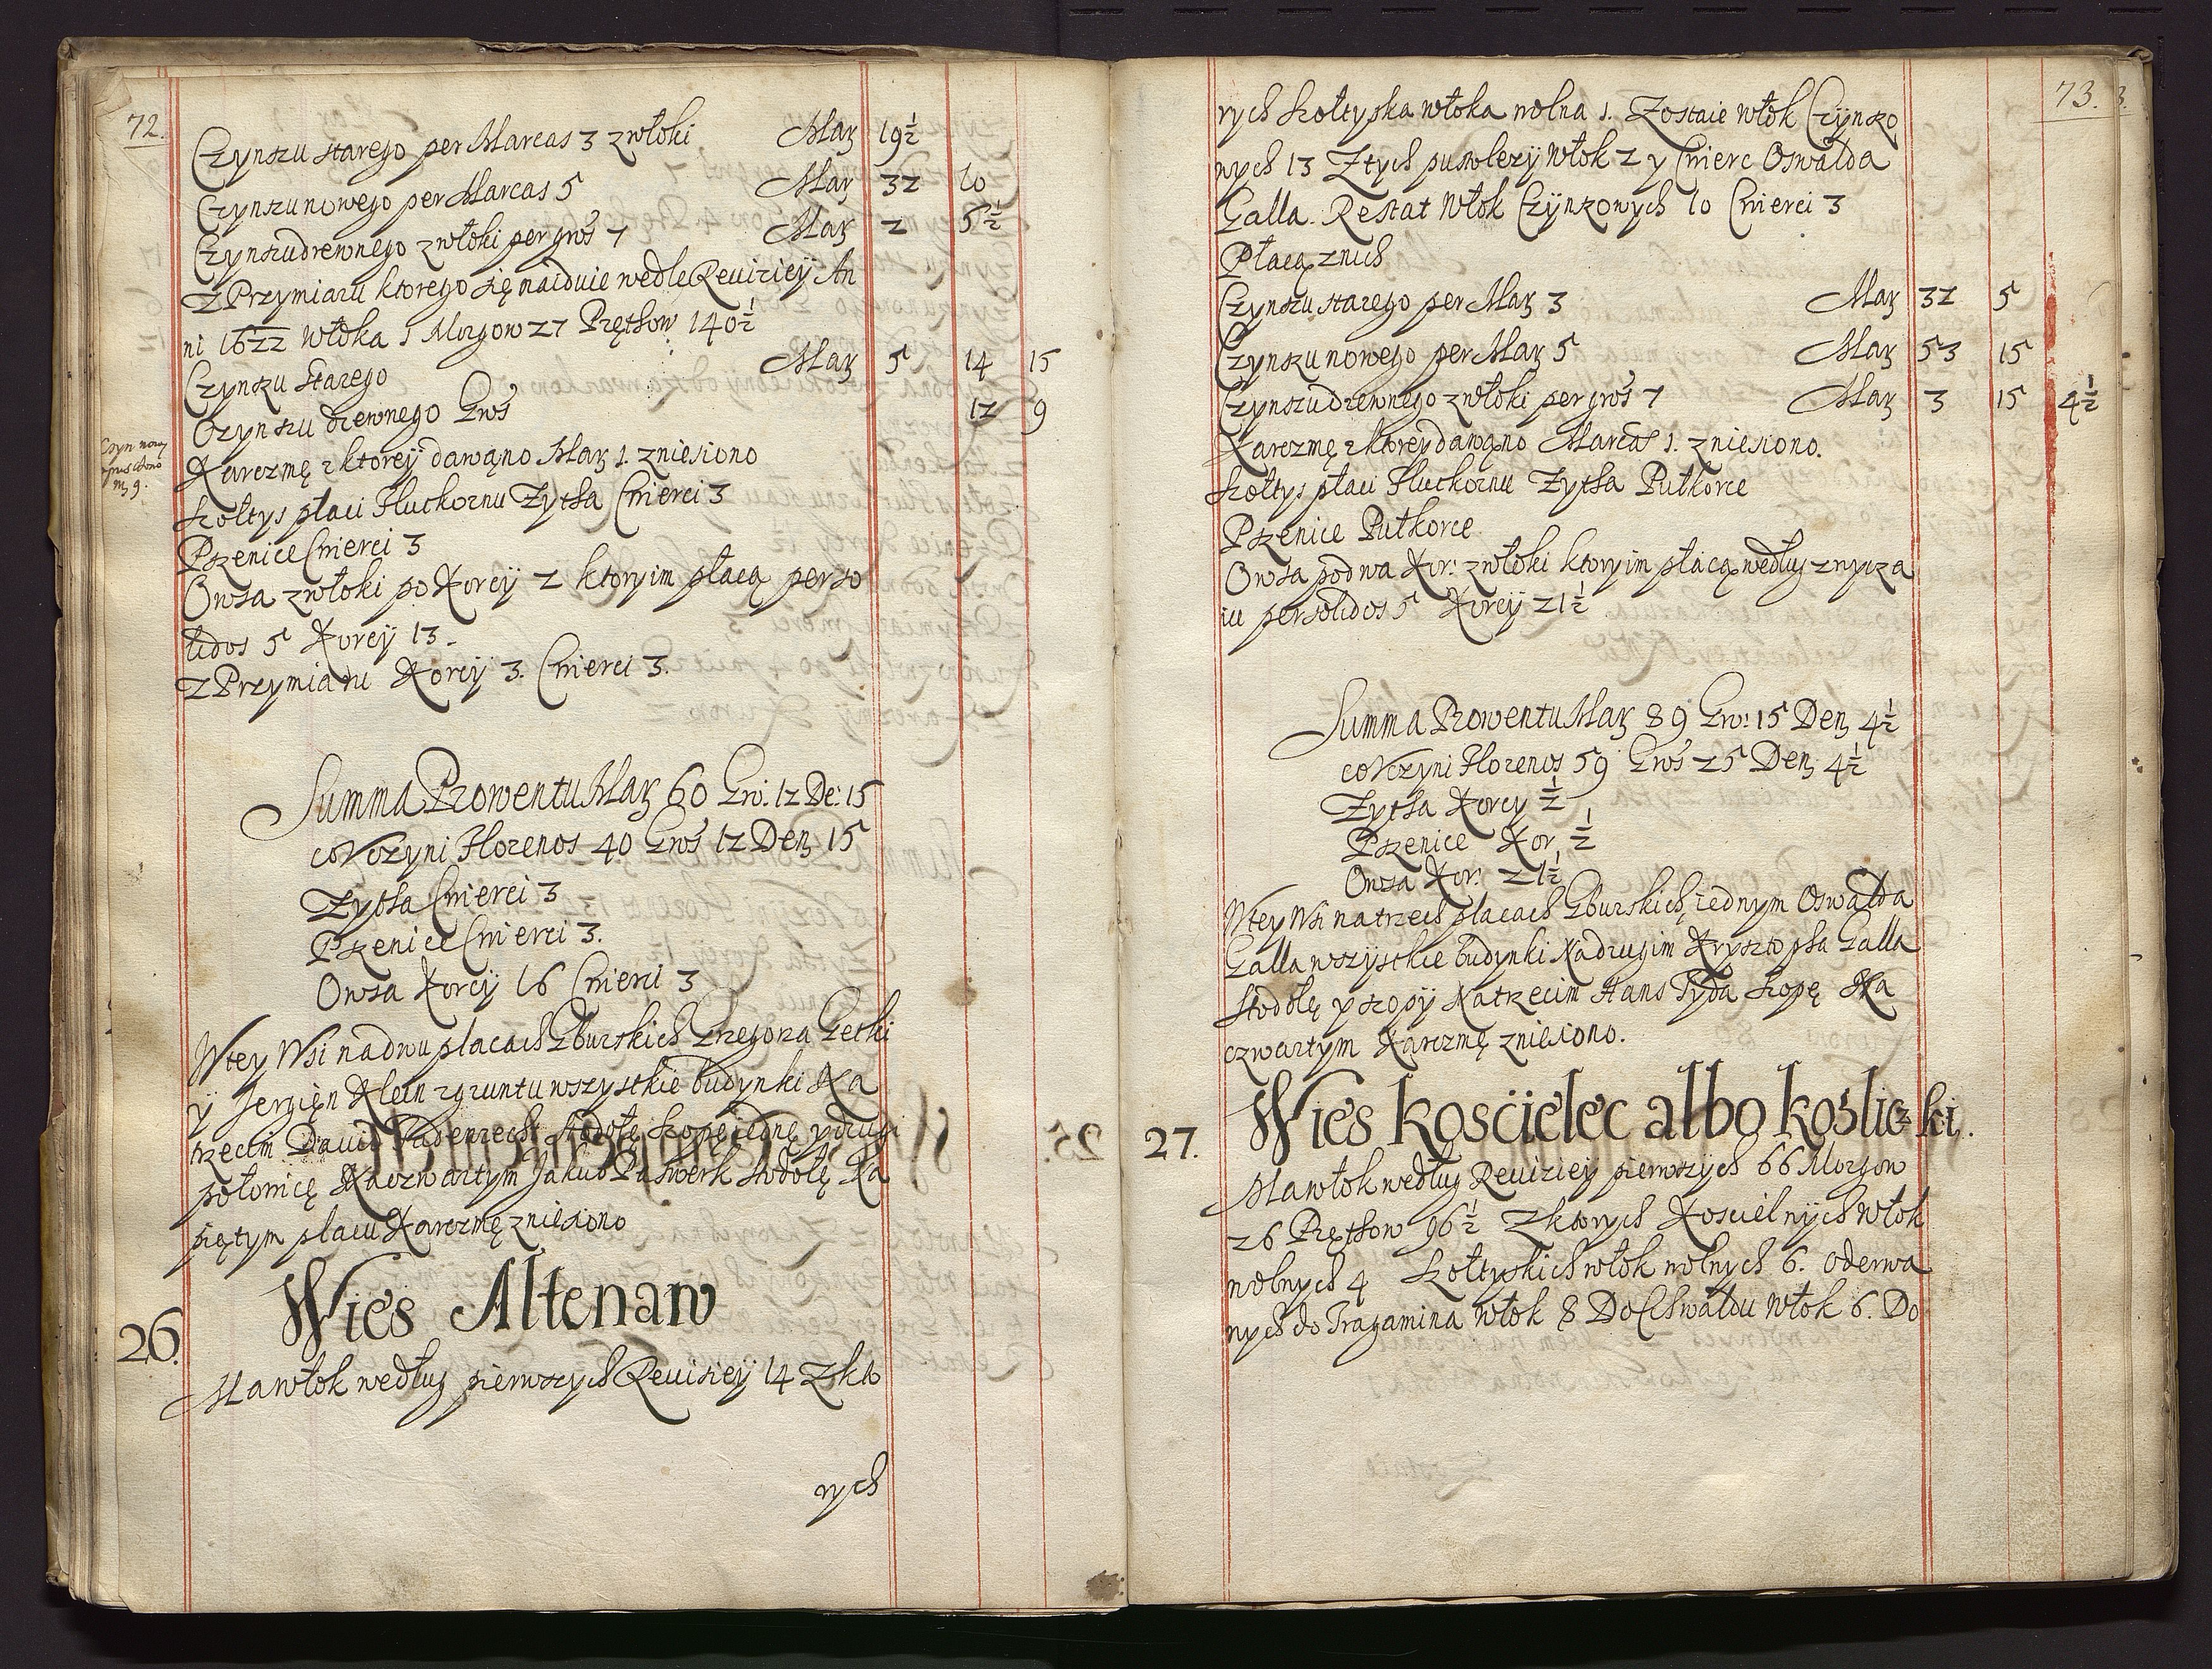 72.
Czynszu starego per Marcas 3 zwłoki Mar 19½
Czynszu nowego per Marcas 5 Mar 32 10
Czynszu drewnego zwłoki per gros 7 Mar 2 5½
Z Przymiaru ktorego się naiduie wedle Reuiziey An
ni 1622 włoka 1 Morgow 27 Prętow 140½
Czynszu Starego Mar 5 14 15
Czynszu drewnego Gros 12 9
Czyn nowy
opuscżono
m 9.
Karczmę z ktorey dawano Mar 1. zniesiono
Szołtys płaci Fluckornu Zytha Cwierci 3
Pszenice Cwierci 3
Owsa zwłoki po Korcy 2 ktory im płacą per so
lidos 5 Korcy 13.
Z Przymiaru Korcy 3. Cwierci 3.
Summa Prowentu Mar 60 Gro: 12 De: 15
co Vczyni Florenos 40 Gros 12 Den 15
Zytha Cwierci 3
Pszenice Cwierci 3.
Owsa Korcy 16 Cwierci 3
W tey Wsi na dwu placach Gburskich Grzegorza
y Jergięn Klein z gruntu wszystkie budynki Na
trzecim Dauid stodołę szopę iednę y drugi
połowicę Na czwartym Jakub Paswerk stodołę Na
piętym placu Karczmę zniesiono
26. Wies Altenaw
Ma włok według pierwszych Reuisiey 14 Z kto
rych
73.
rych szołtyska włoka wolna 1. Zostaie włok Czynszo
wych 13 Z tych pusto lezy włok 2 y Cwierc Oswalda
Galla. Restat Włok Czynszowych 10 Cwierci 3
Płacą z nich
Czynszu starego per Mar 3 Mar 32 5
Czynszu nowego per Mar 5 Mar 53 15
Czynszu drewnego zwłoki per gros 7 Mar 3 15 4½
Karczmę z ktorey dawano Marcas 1. zniesiono.
Szołtys płaci Fluckornu Zytha Pułkorce
Pszenice Pułkorce
Owsa po dwa Kor: zwłoki ktory im płacą według zwycza
iu per solidos 5 Korcy 21½
Summa Prowentu Mar 89 Gro: 15 Den 4½
co Vczyni Florenos 59 Gros 25 Den 4½
Zytha Korcy ½
Pszenice Kor ½
Owsa Kor: 21½
W tey Wsi na trzech placach Gburskich, iednym Oswalda
Galla wszystkie budynki Na drugim Krysztopha Galla
stodołę y szopy Na trzecim Hans Tyda szopę Na
czwartym Karczmę zniesiono.
27. Wies kościelec albo kośliczki.
Ma włok według Reuiziey pierwszych 66 Morgow
26 Prętow 96½ Z ktorych Koscielnych włok
wolnych 4 Szołtyskich włok wolnych 6. oderwa
nych do Tragamina włok 8 Do Chwałdu włok 6. Do